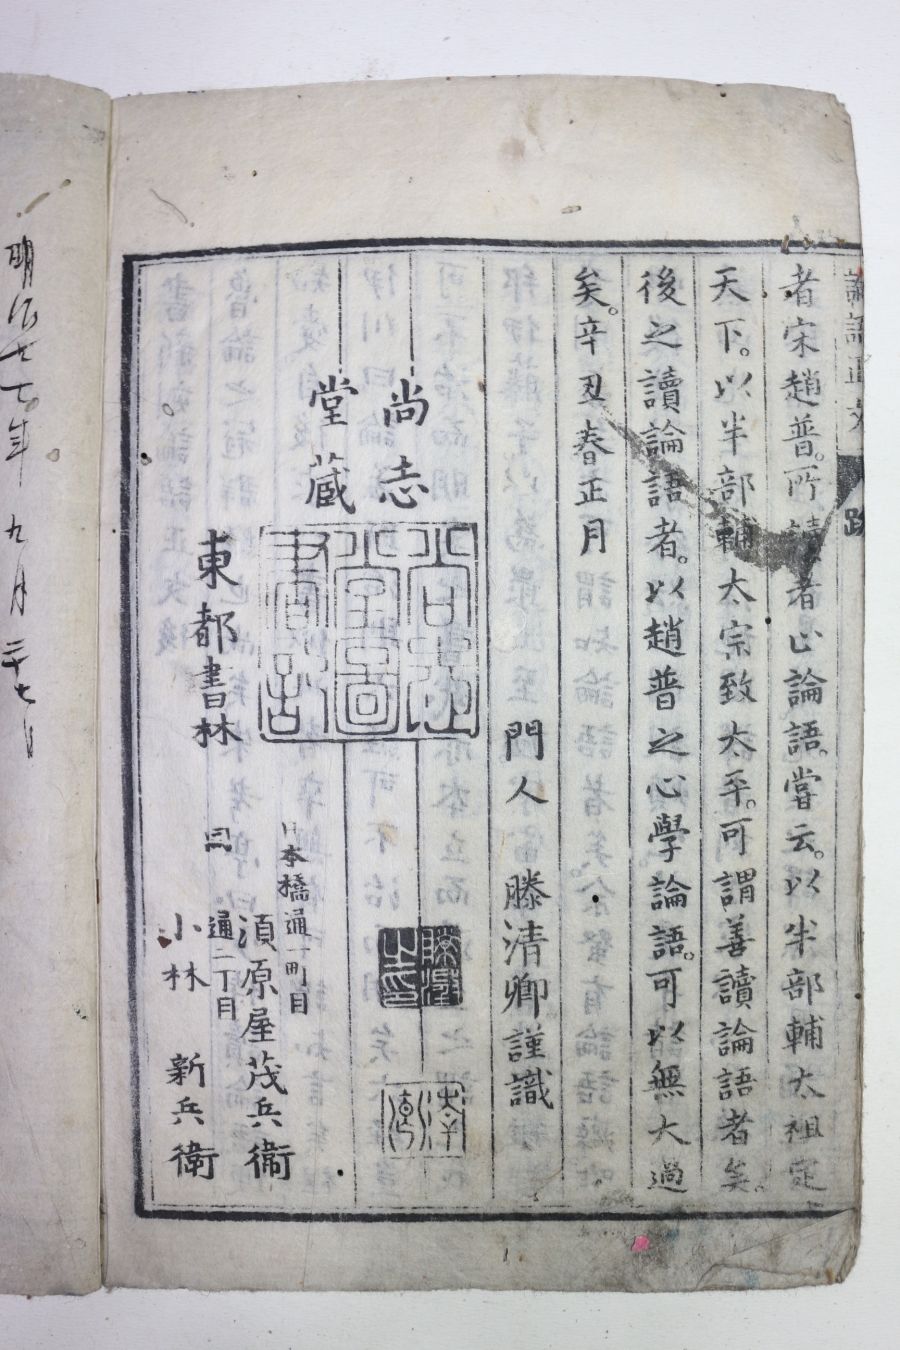 論語正文
跋
者宋趙普。所讀者止論語。嘗云。以半部輔太祖定
天下。以半部輔太宗致太平。可謂善讀論語者矣。
後之讀論語者。以趙普之心學論語。可以無大過
矣。辛丑春正月
門人 滕清卿謹識
尚志
堂蔵
日本橋通一町目
須原屋茂兵衞
東都書林
同
通二丁目
小林 新兵衞
明治廿七年 九月 三十七日